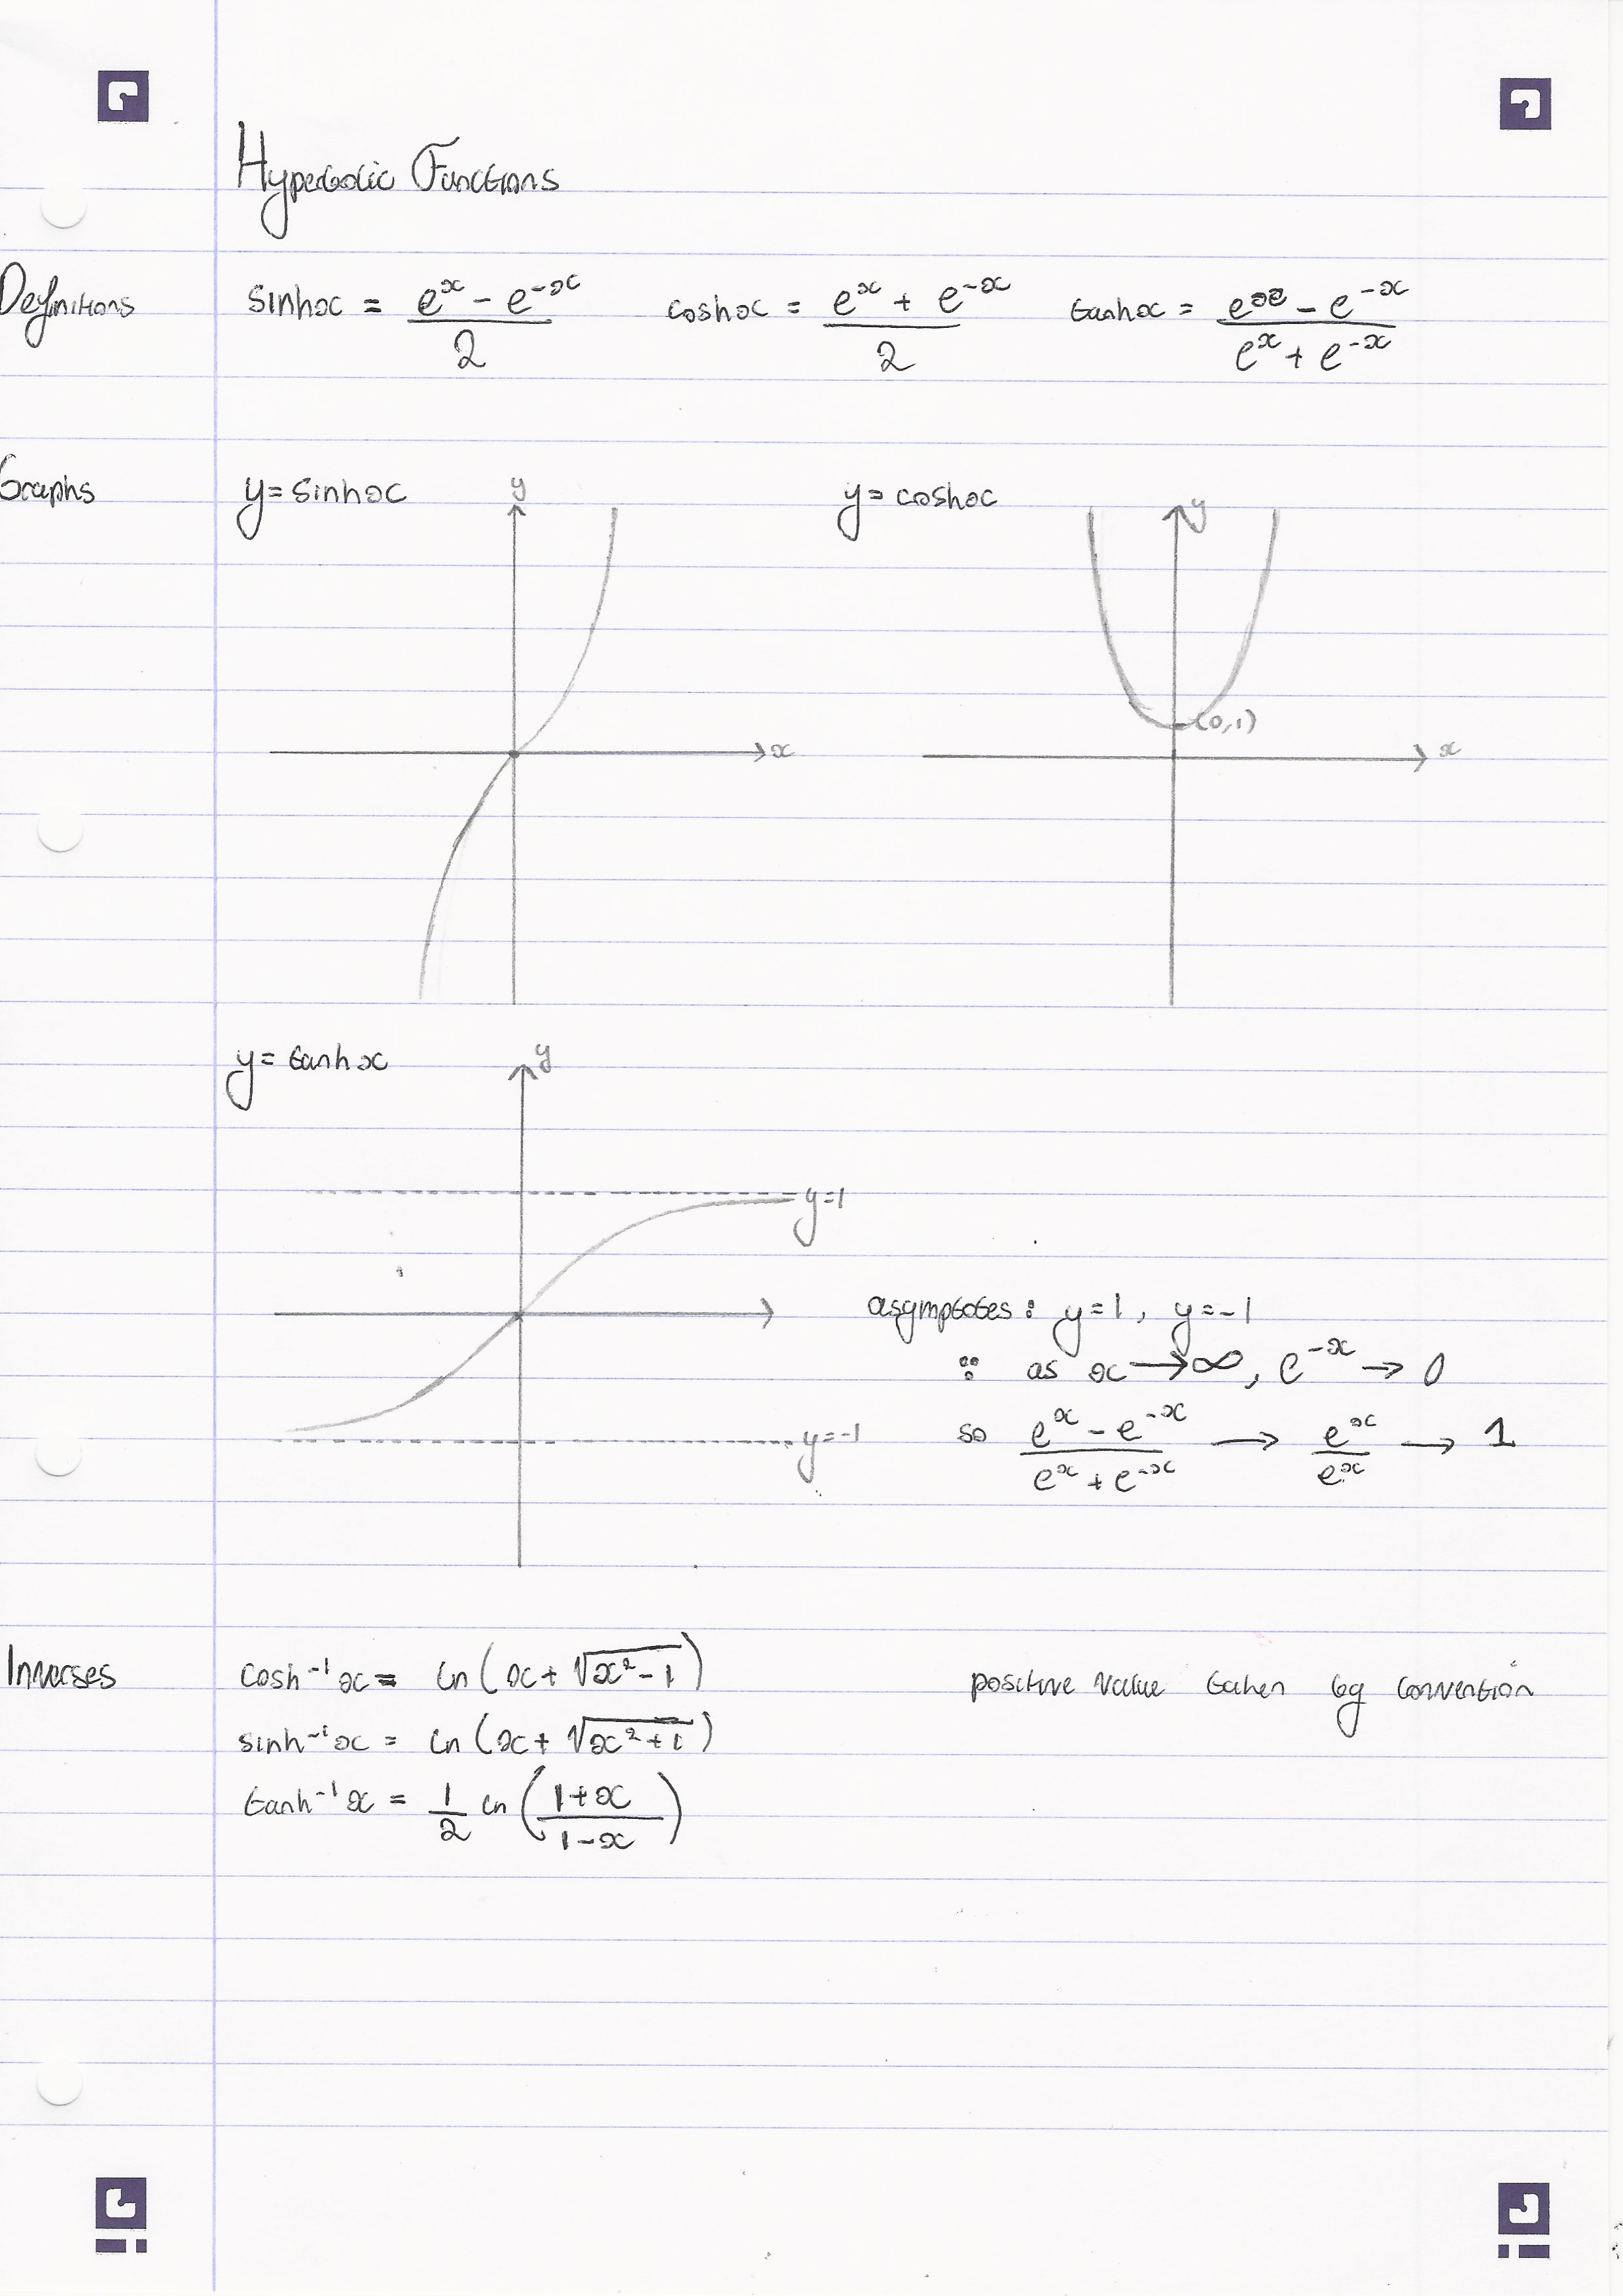 Hyperbolic Functions
Definitions sinhx = (e^x - e^-x)/2 coshx = (e^x + e^-x)/2 tanhx = (e^x - e^-x)/(e^x + e^-x)
Graphs y=sinhx y y=coshx y
(0,1)
x x
y=tanhx y
y=1
asymptotes: y=1, y=-1
∵ as x→∞, e^-x → 0
y=-1 so (e^x - e^-x)/(e^x + e^-x) → e^x/e^x → 1
Inverses cosh⁻¹x = ln(x+√(x²-1)) positive value taken by convention
sinh⁻¹x = ln(x+√(x²+1))
tanh⁻¹x = 1/2 ln((1+x)/(1-x))